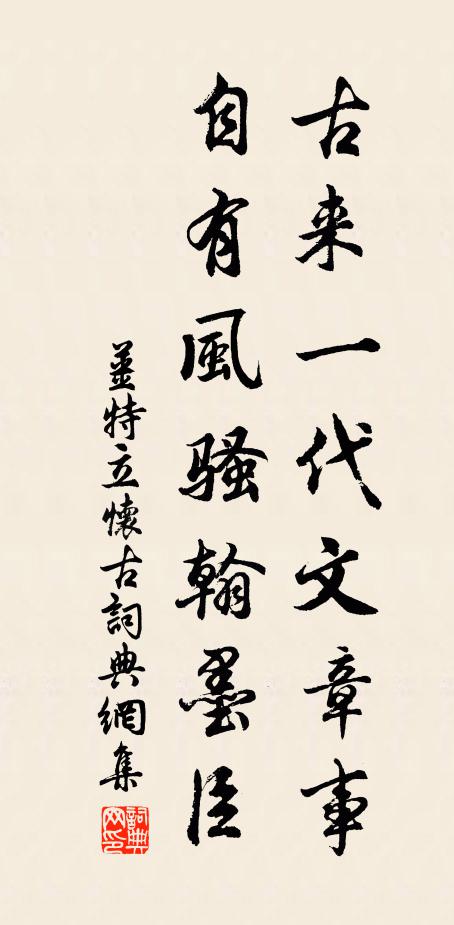 古来一代文章事
自有風骚翰墨臣
薑特立懷古詞典網集
詞典网印